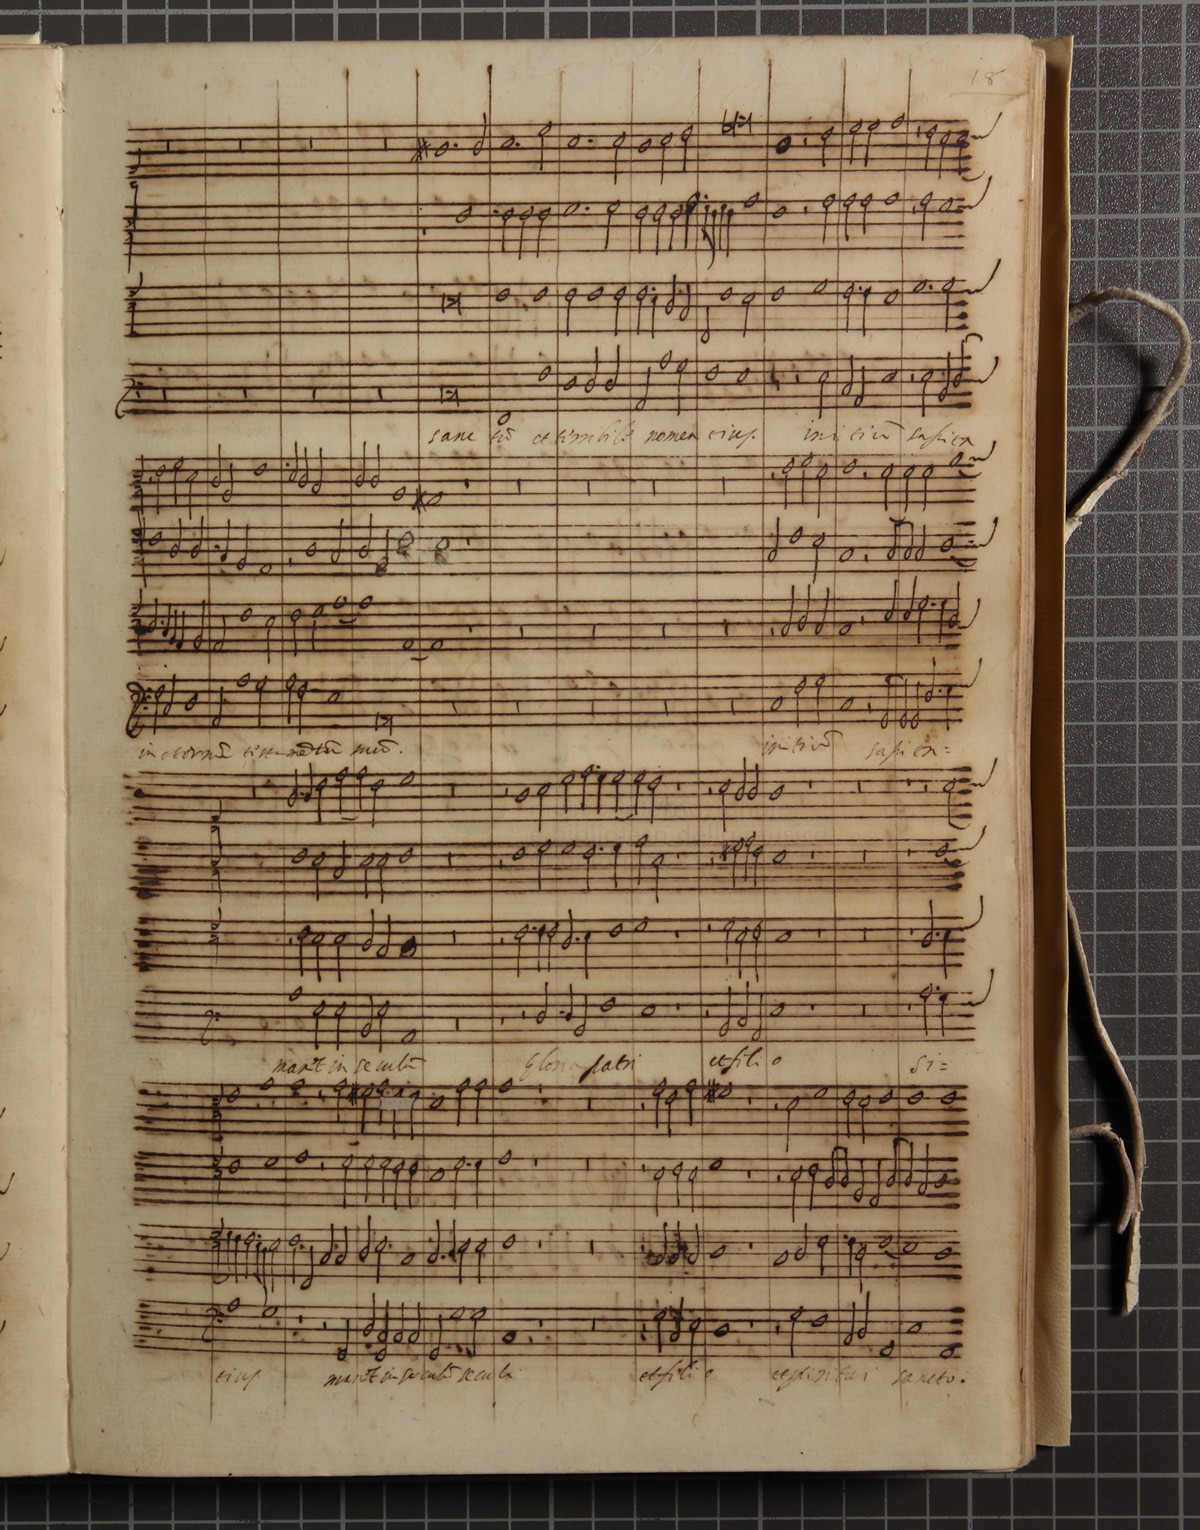 18
sanc tū et terribile nomen eius. initiū sapien
in eternū testamētū suū. initiū sapien=
manet in seculū gloria patri et filio si=
eius manet in seculū seculi et filio et spiritui sancto.